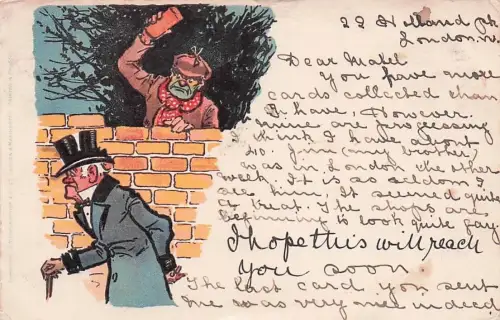 22 Holland pk
London. W.
Dear Mabel
You have more
cards collected than
I have, However
mine are progressing
I think I have about
40. Jim (my brother)
was in London the other
week. It is so seldom I
see him, It seemed quite
a treat. The shops are
beginning to look quite gay.
I hope this will reach
you soon
The last card you sent
me was very nice indeed